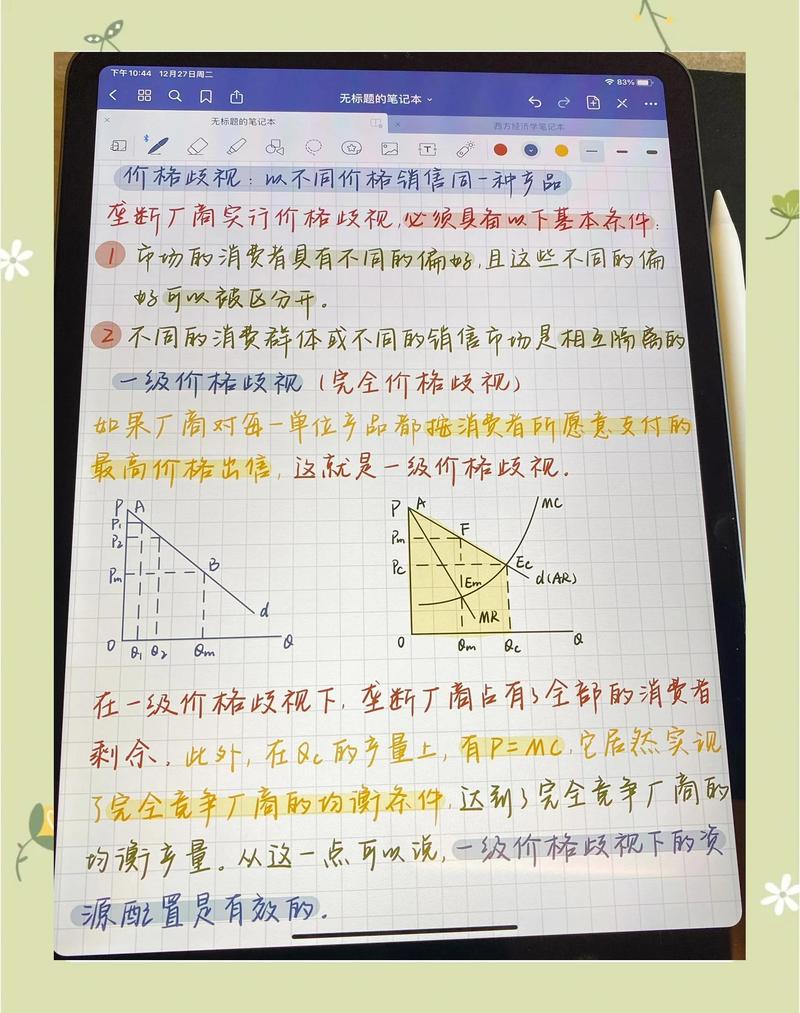 下午10:44 12月27日周二
83%
无标题的笔记本
无标题的笔记本
西方经济学笔记本
价格歧视:以不同价格销售同一种产品
垄断厂商实行价格歧视,必须具备以下基本条件:
1 市场的消费者具有不同的偏好,且这些不同的偏
好可以被区分开。
2 不同的消费群体或不同的销售市场是相互隔离的
一级价格歧视(完全价格歧视)
如果厂商对每一单位产品都按消费者所愿意支付的
最高价格出售,这就是一级价格歧视.
P A
P1
P2
Pm
B
d
O Q1 Q2 Qm Q
P A MC
Pm F
Pc Ec
d(AR)
Em
MR
O Qm Qc Q
在一级价格歧视下,垄断厂商占有了全部的消费者
剩余。此外,在Qc的产量上,有P=MC,它居然实现
了完全竞争厂商的均衡条件,达到了完全竞争厂商的
均衡产量。从这一点可以说,一级价格歧视下的资
源配置是有效的.